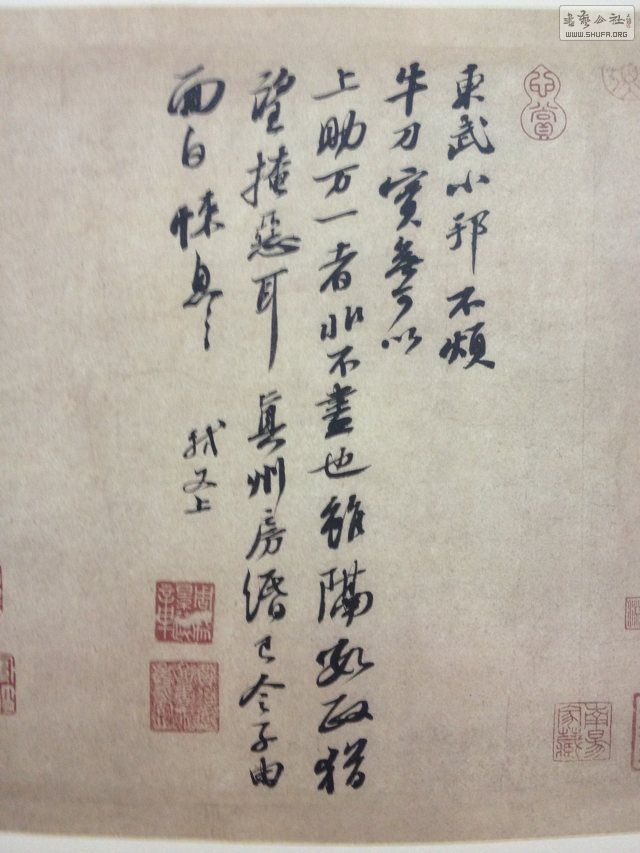 東武小邦不煩
牛刀實無可以
上助万一者非不盡也雖隔數政猶
望掩惡耳真州房緡已令子由
面白悚息〻
軾又上
WWW.SHUFA.ORG